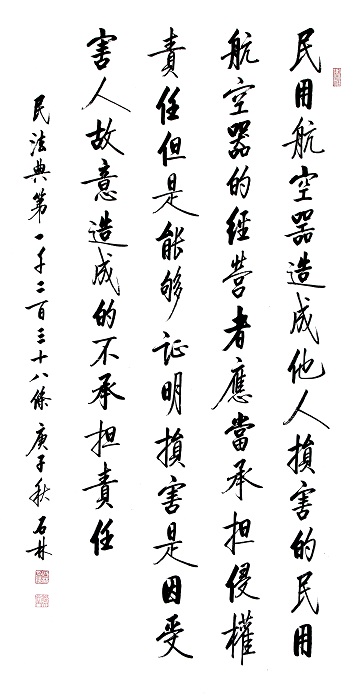 民用航空器造成他人損害的民用
航空器的經營者應當承担侵權
責任但是能够证明損害是因受
害人故意造成的不承担責任
民法典第一千二百三十八條 庚子秋 石林